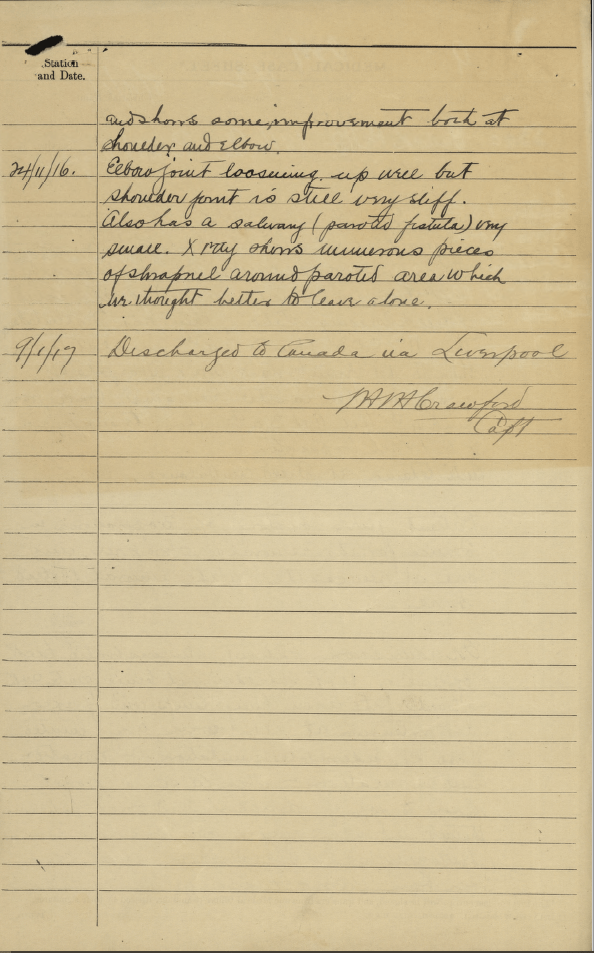 Station
and Date.
and shows some improvement both at
shoulder and elbow.
24/11/16. Elbow joint loosening up well but
shoulder joint is still very stiff.
Also has a salivary (parotid fistula) very
small. X ray shows numerous pieces
of shrapnel around parotid area which
we thought better to leave alone.
9/1/17 Discharged to Canada via Liverpool
Crawford
Capt